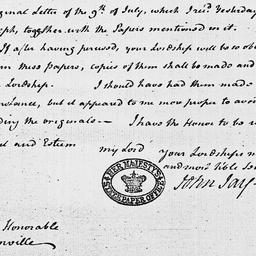 ginal Letter of the 9th of July, which I rec'd Yesterday
ph, together with the Papers mentioned in it.
If after having perused, your Lordship will be so ob
rn these Papers, copies of them shall be made and
Lordship. I should have had them made
but it appeared to me more proper to avoi
ding the originals — I have the Honor to be w
and Esteem
my Lord your Lordships m
and most ble Se
HER MAJESTY'S
STATE PAPER OFFICE
John Jay
Honorable
nville